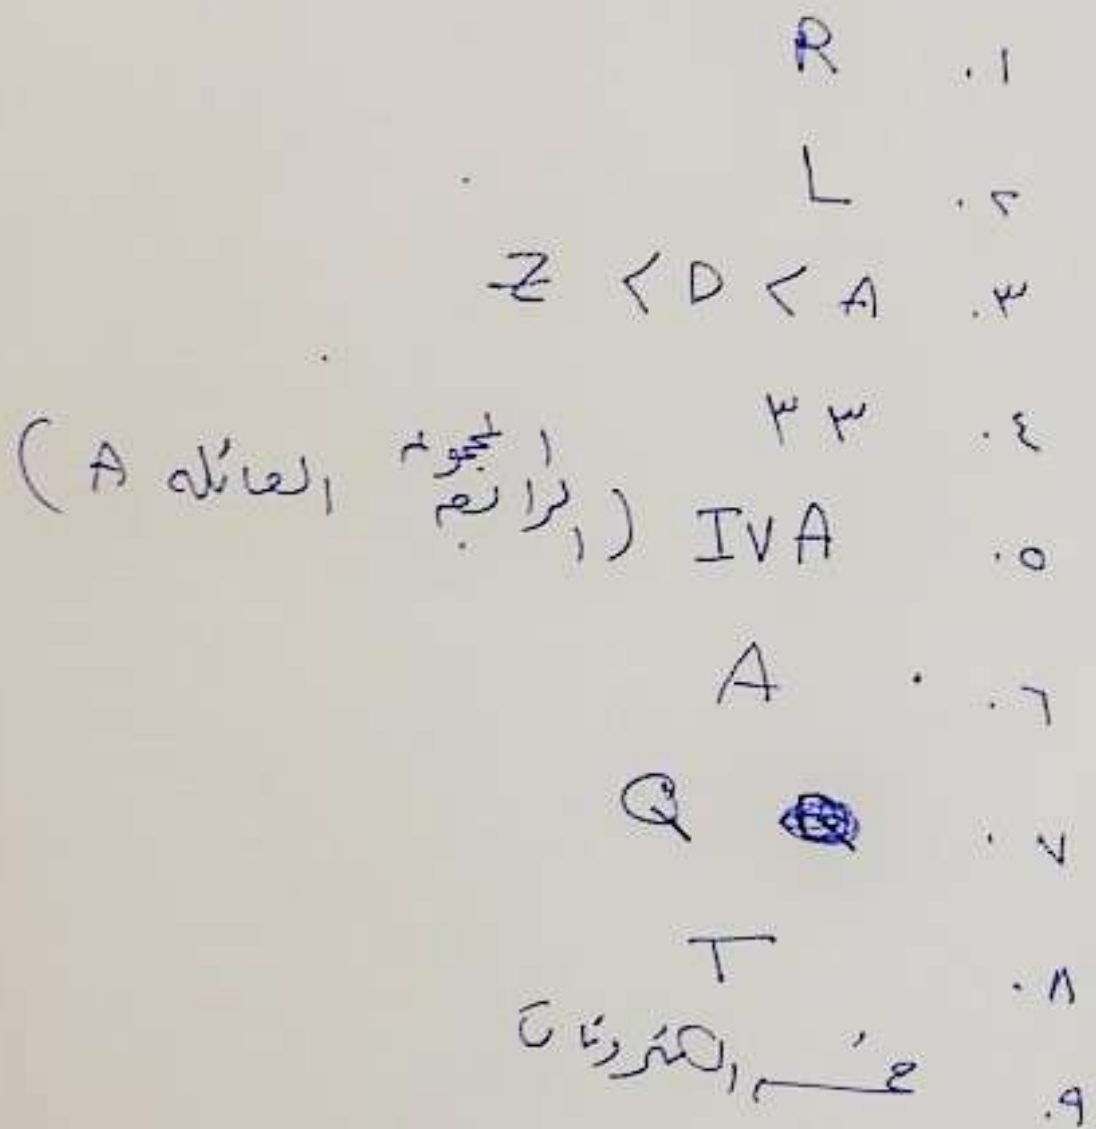 ١. R
٢. L
٣. Z < D < A
٤. ٣٣
٥. IVA (المجموعة الرابعة العائلة A)
٦. A
٧. Q
٨. T
٩. خمس الكترونات